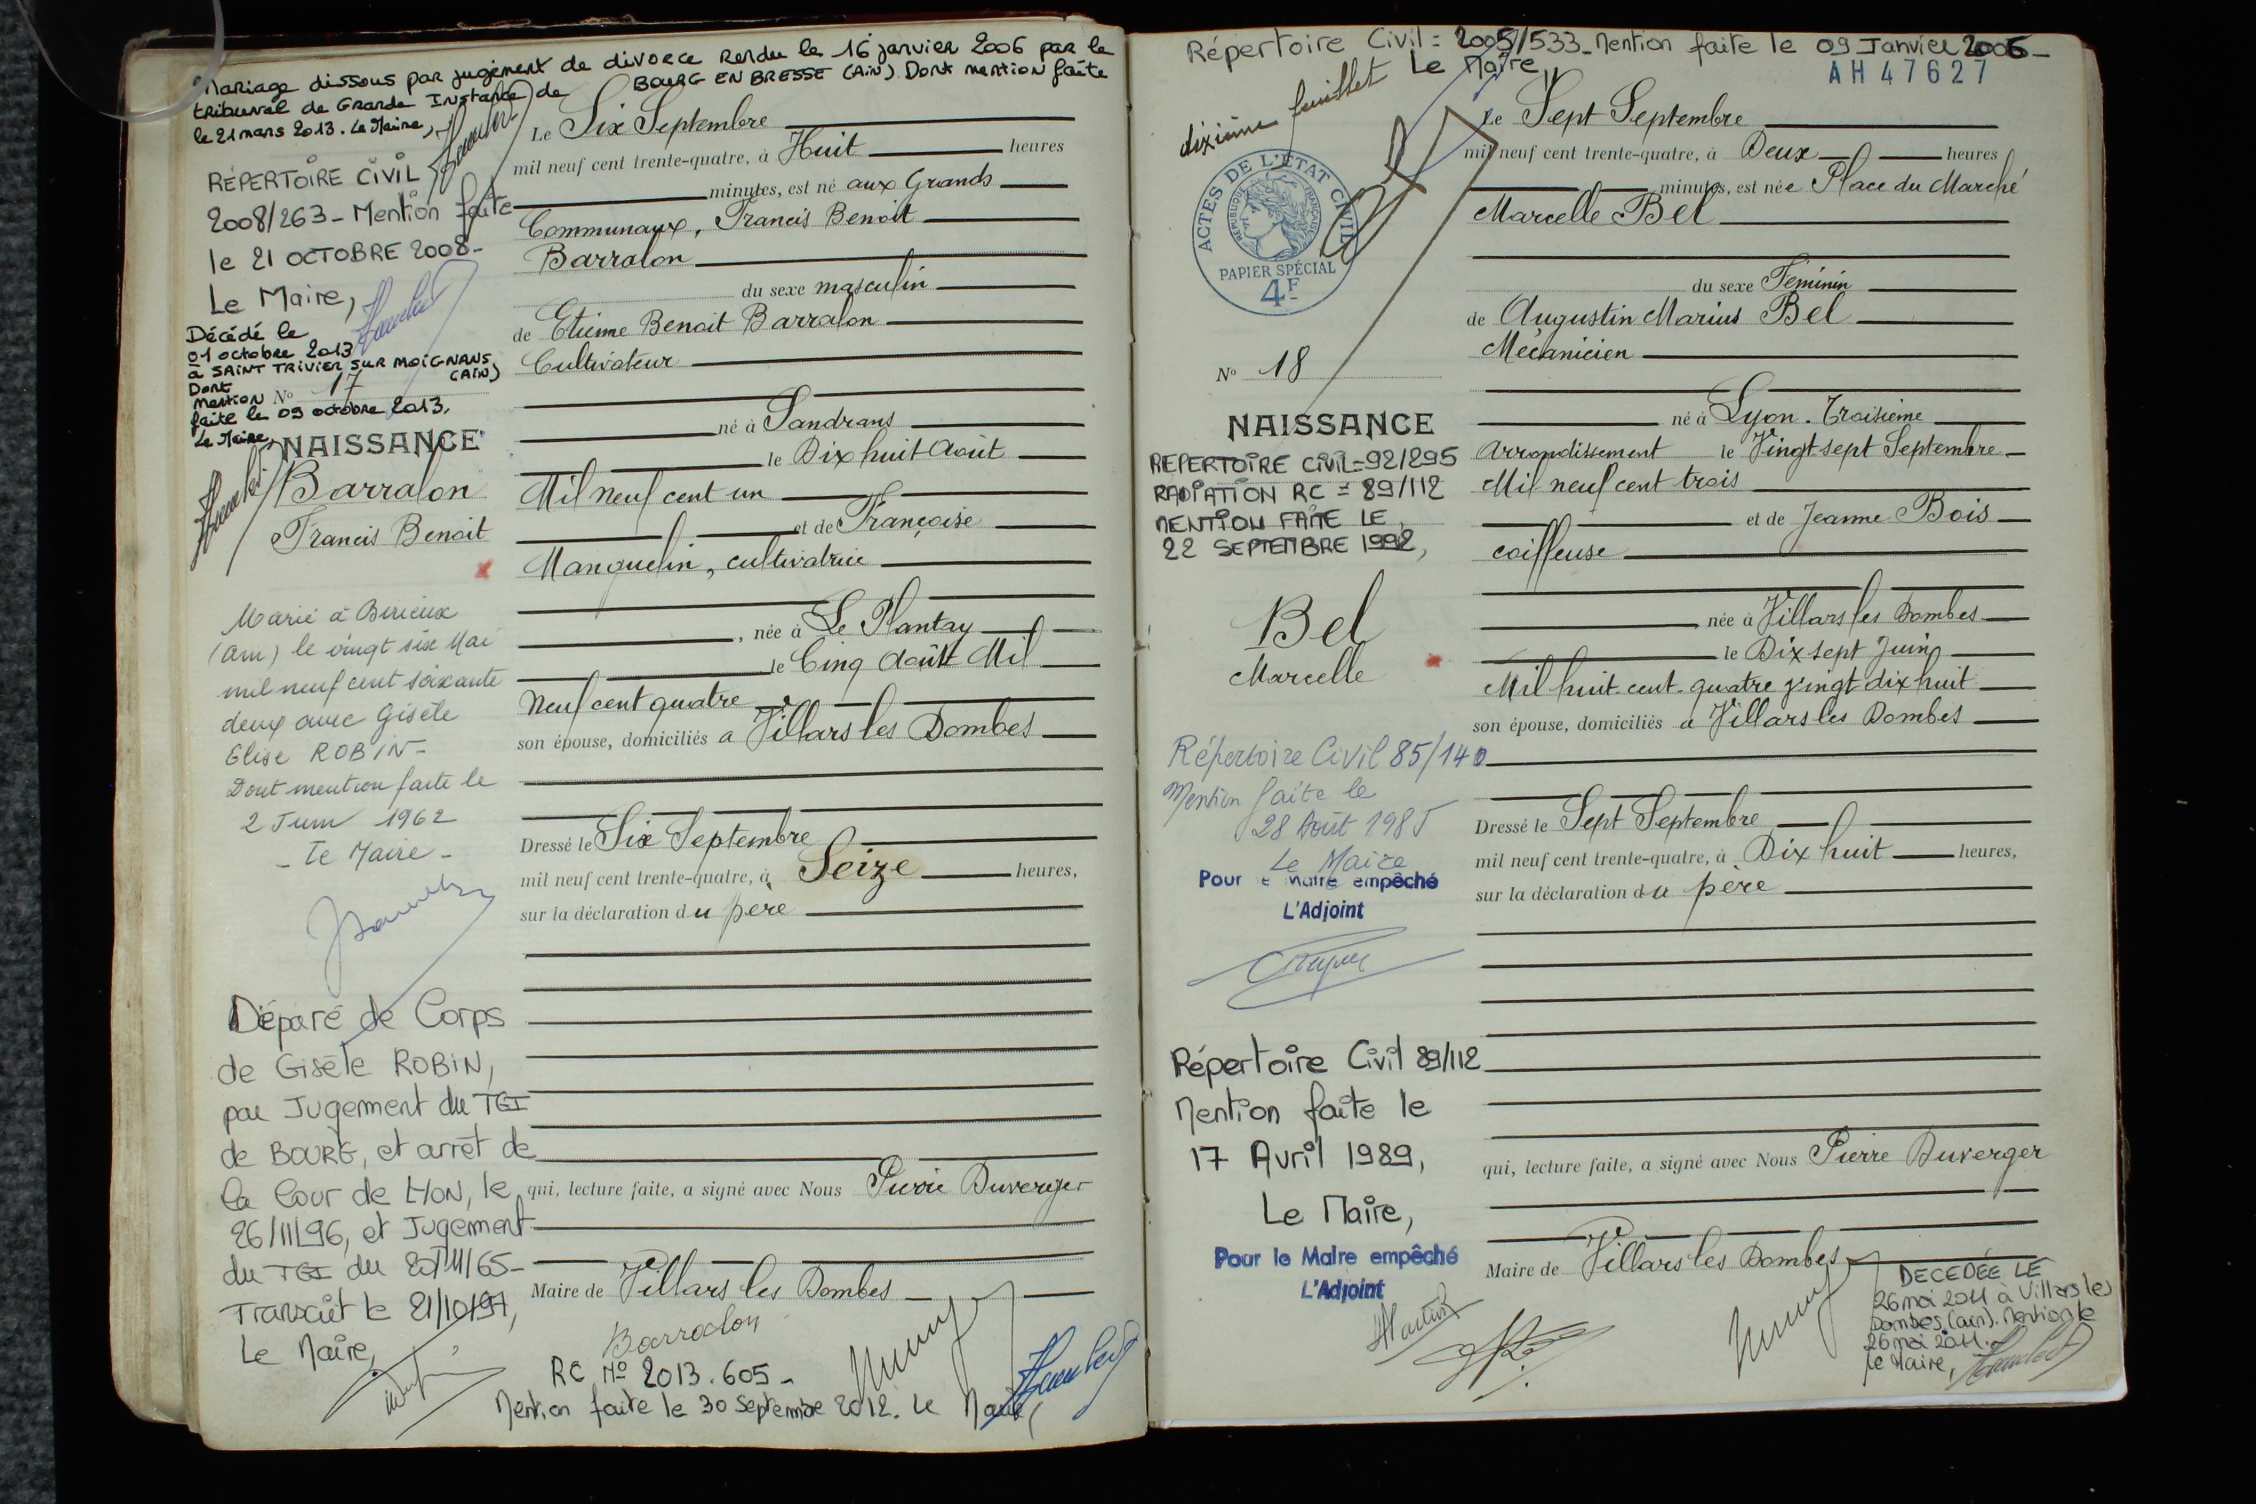 Mariage dissous par jugement de divorce rendu le 16 janvier 2006 par le
tribunal de Grande Instance de BOURG EN BRESSE (AIN). Dont mention faite
le 21 mars 2013. Le Maire,
RÉPERTOIRE CIVIL
2008/263 - Mention faite
le 21 OCTOBRE 2008-
Le Maire,
Décédé le
01 octobre 2013
à SAINT TRIVIER SUR MOIGNANS
(AIN)
Dont
mention
faite le 09 octobre 2013,
Le Maire,
N° 17
NAISSANCE
Barralon
Francis Benoit
Marié à Birieux
(Ain) le vingt six Mai
mil neuf cent soixante
deux avec Gisèle
Elise ROBIN-
Dont mention faite le
2 Juin 1962
- Le Maire -
Déparé de Corps
de Gisèle ROBIN,
par Jugement du TGI
de BOURG, et arrêt de
la Cour de LYON, le
26/11/96, et Jugement
du TGI du
Transcrit le 21/10/97,
Le Maire,
Le Six Septembre
mil neuf cent trente-quatre, à Huit heures
minutes, est né aux Grands
Communaux, Francis Benoit
Barralon
du sexe masculin
de Etienne Benoit Barralon
Cultivateur
né à Sandrans
le Dix huit Août
Mil neuf cent un
et de Françoise
Manguelin, cultivatrice
, née à Le Plantay
le Cinq Août Mil
Neuf cent quatre
son épouse, domiciliés a Villars les Dombes
Dressé le Six Septembre
mil neuf cent trente-quatre, à Seize heures,
sur la déclaration du père
qui, lecture faite, a signé avec Nous Pierre Duverger
Maire de Villars les Dombes
Barralon
RC N° 2013.605-
Mention faite le 30 Septembre 2012. Le Maire,
Répertoire Civil = 2005/533- Mention faite le 09 Janvier 2006-
Le Maire,
AH47627
dixième feuillet
ACTES DE L'ÉTAT CIVIL
RÉPUBLIQUE FRANÇAISE
PAPIER SPÉCIAL
4F
N° 18
NAISSANCE
REPERTOIRE CIVIL=92/295
RADIATION RC = 89/112
MENTION FAITE LE
22 SEPTEMBRE 1992,
Bel
Marcelle
Répertoire Civil 85/140
Mention faite le
28 Août 1985
Le Maire
Pour le Maire empêché
L'Adjoint
Répertoire Civil 89/112
Mention faite le
17 Avril 1989,
Le Maire,
Pour le Maire empêché
L'Adjoint
Le Sept Septembre
mil neuf cent trente-quatre, à Deux heures
minutes, est née Place du Marché
Marcelle Bel
du sexe Féminin
de Augustin Marius Bel
Mécanicien
né à Lyon. Troisième
Arrondissement le Vingt sept Septembre
Mil neuf cent trois
et de Jeanne Bois
coiffeuse
née à Villars les Dombes
le Dix sept Juin
Mil huit cent quatre vingt dix huit
son épouse, domiciliés a Villars les Dombes
Dressé le Sept Septembre
mil neuf cent trente-quatre, à Dix huit heures,
sur la déclaration du père
qui, lecture faite, a signé avec Nous Pierre Duverger
Maire de Villars les Dombes
DECEDÉE LE
26 mai 2011 à Villars les
Dombes (ain). Mention le
26 mai 2011.
Le Maire,